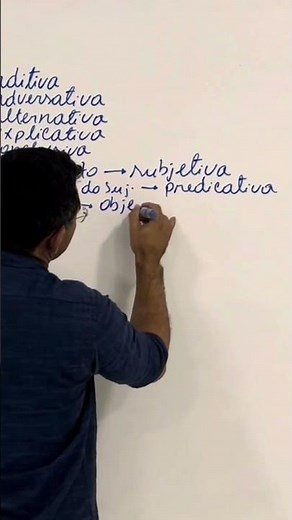 aditiva
adversativa
alternativa
explicativa
to → subjetiva
do Suj. → predicativa
→ obje